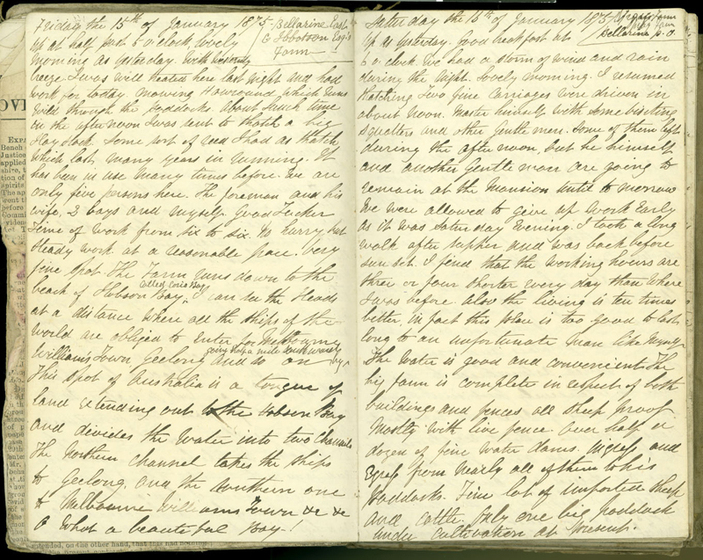 Friday the 15th of January 1875
Bellarine East
C. Ibbotson Esqr's
Farm
Up at half past 5 o'clock lovely
morning as yesterday. With
breeze I was well treated here last night and had
work for today mowing Howround which runs
wild through the paddocks. About lunch time
in the after noon I was sent to thatch a big
Hay stack. Some sort of reed I had as thatch
which last many years in running. It
has been in use many times before. We are
only five persons here. The foreman and his
wife, 2 boys and myself. Good Tucker
time of work from Six to Six. No hurry but
steady work at a reasonable pace. Very
fine spot. The Farm runs down to the
called Corio Bay
beach of Hobson Bay. I can see the Heads
at a distance where all the ships of the
world are obliged to enter for Melbourne
Williams Town Geelong and so on
This spot of Australia is a tongue of
land extending out to the Hobson Bay
and divides the water into two Channels
The Northern Channel takes the ships
to Geelong and the Southern one
to Melbourne Williams Town &c &c
O what a beautiful Bay!
Saturday the 16th of January 1875
Farm
Bellarine P.O.
Up as yesterday. Good breakfast at
6 o'clock We had a storm of wind and rain
during the night. Lovely morning. I resumed
thatching Two fine Carriages were driven in
about Noon. Master himself with some visiting
squatters and other Gentlemen. Some of them left
during the after noon, but he himself
and another Gentleman are going to
remain at the Mansion until to morrow
We were allowed to give up Work Early
as it was Saturday Evening. I took a long
walk after supper and was back before
sun set. I find that the working hours are
three or four shorter every day than where
I was before. Also the living is ten times
better, in fact this place is too good to last
long to an unfortunate man like myself.
The Water is good and convenient. The
big farm is complete in respect of both
buildings and fences all sheep proof
Mostly with live fence. Over half a
dozen of fine water dams, Ingress and
Egress from nearly all of them to his
Paddocks. Fine lot of imported sheep
and cattle. Only one big paddock
under cultivation at present.